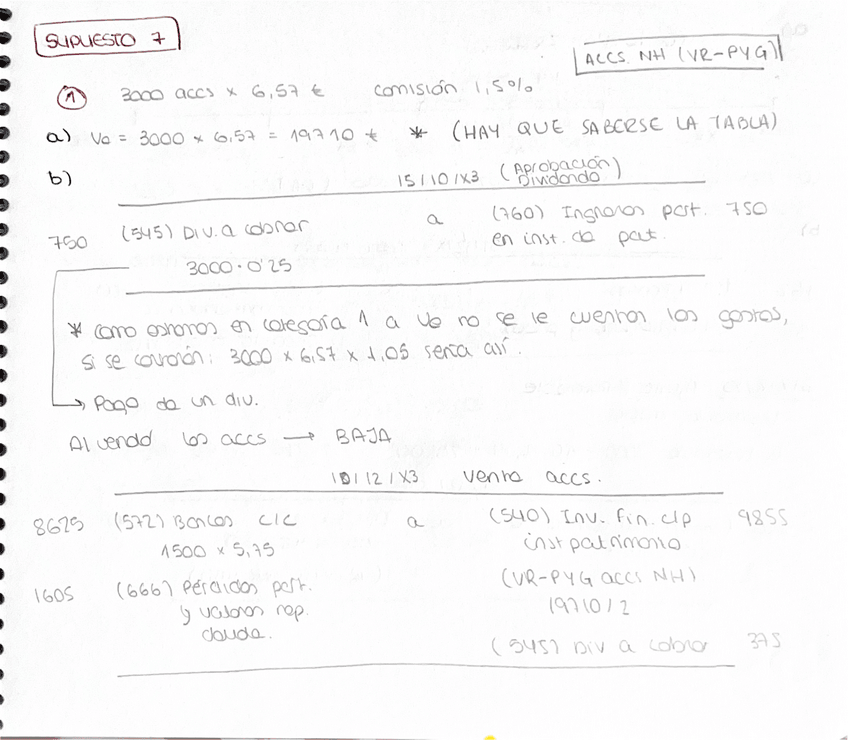 SUPUESTO 7
ACCS. NH (VR-PYG)
1 3000 accs x 6,57 € comisión 1,5%
a) Vo = 3000 x 6,57 = 19710 € * (HAY QUE SABERSE LA TABLA)
b) 15/10/X3 (Aprobación Dividendo)
750 (545) Div. a cobrar a (760) Ingresos part. 750
en inst. de pat.
3000 · 0'25
* como estamos en categoría 1 a Vo no se le cuentan los gastos,
si se contarán: 3000 x 6,57 x 1,05 sería así.
→ Pago de un div.
Al vender las accs → BAJA
10/12/X3 venta accs.
8625 (572) Bancos c/c a (540) Inv. fin. c/p 9855
1500 x 5,75 inst patrimonio
1605 (666) Pérdidas part. (VR-PYG accs NH)
y valores rep. 19710/2
deuda.
(545) Div a cobrar 375